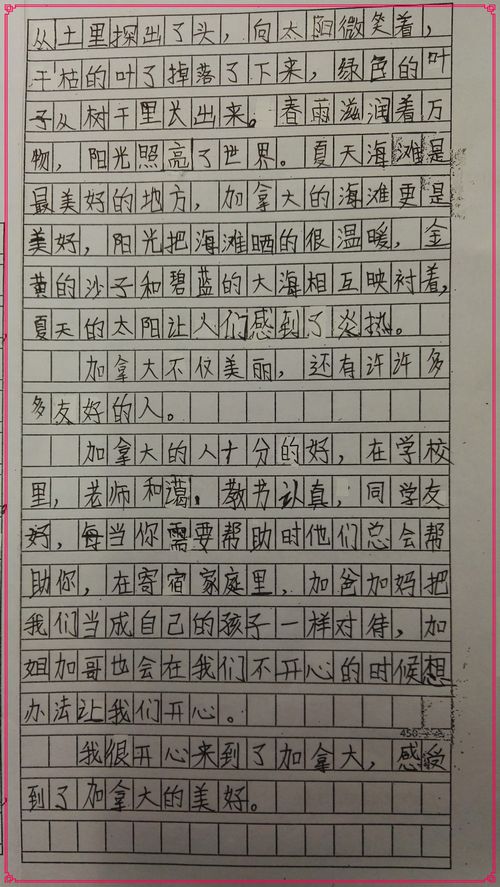 从土里探出了头，向太阳微笑着，
干枯的叶了掉落了下来，绿色的叶
子从树干里长出来。春雨滋润着万
物，阳光照亮了世界。夏天海滩是
最美好的地方，加拿大的海滩更是
美好，阳光把海滩晒的很温暖，金
黄的沙子和碧蓝的大海相互映衬着，
夏天的太阳让人们感到了炎热。
加拿大不仅美丽，还有许许多
多友好的人。
加拿大的人十分的好，在学校
里，老师和蔼，教书认真，同学友
好，每当你需要帮助时他们总会帮
助你，在寄宿家庭里，加爸加妈把
我们当成自己的孩子一样对待，加
姐加哥也会在我们不开心的时候想
办法让我们开心。
450字
我很开心来到了加拿大，感受
到了加拿大的美好。